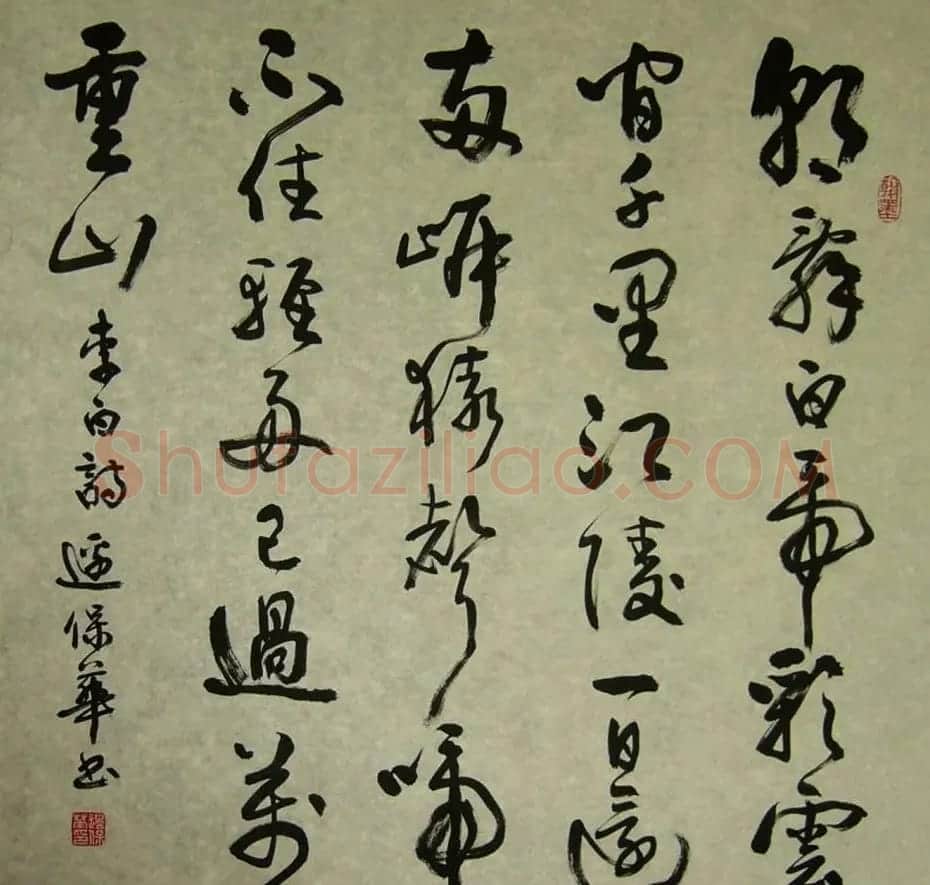 朝辭白帝彩雲
間千里江陵一日還
兩岸猿聲啼
不住輕舟已過萬
重山
李白詩 邊保華书
Shufaziliao.COM